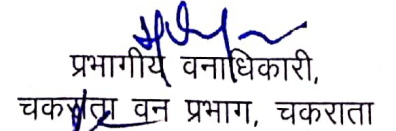 प्रभागीय वनाधिकारी,
चकराता वन प्रभाग, चकराता